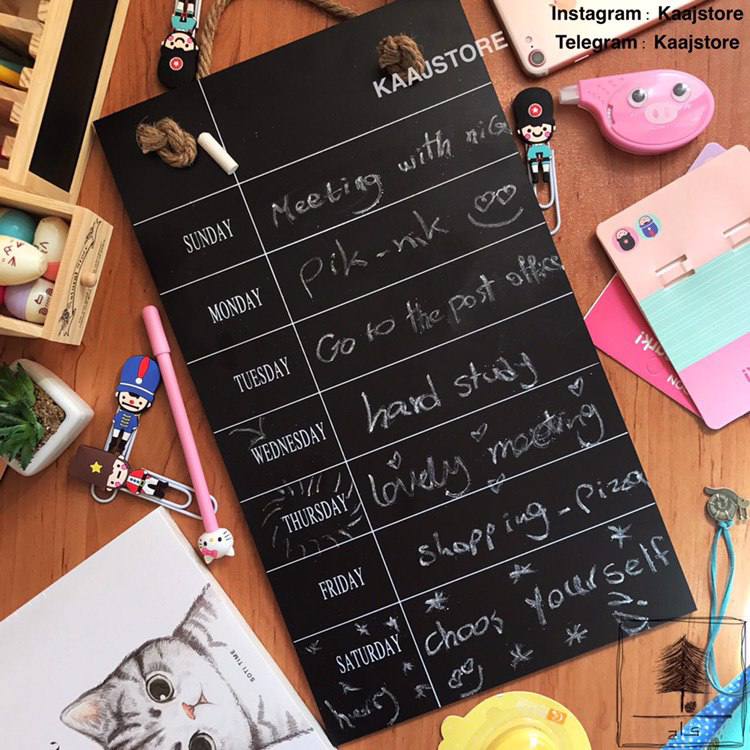 Instagram : Kaajstore
Telegram : Kaajstore
KAAJSTORE
SUNDAY Meeting with nic
MONDAY Pik-nik
TUESDAY Go to the post office
WEDNESDAY hard study
THURSDAY Lovely meeting
FRIDAY shopping-pizza
SATURDAY choos yourself
SOTI TIME
کاج